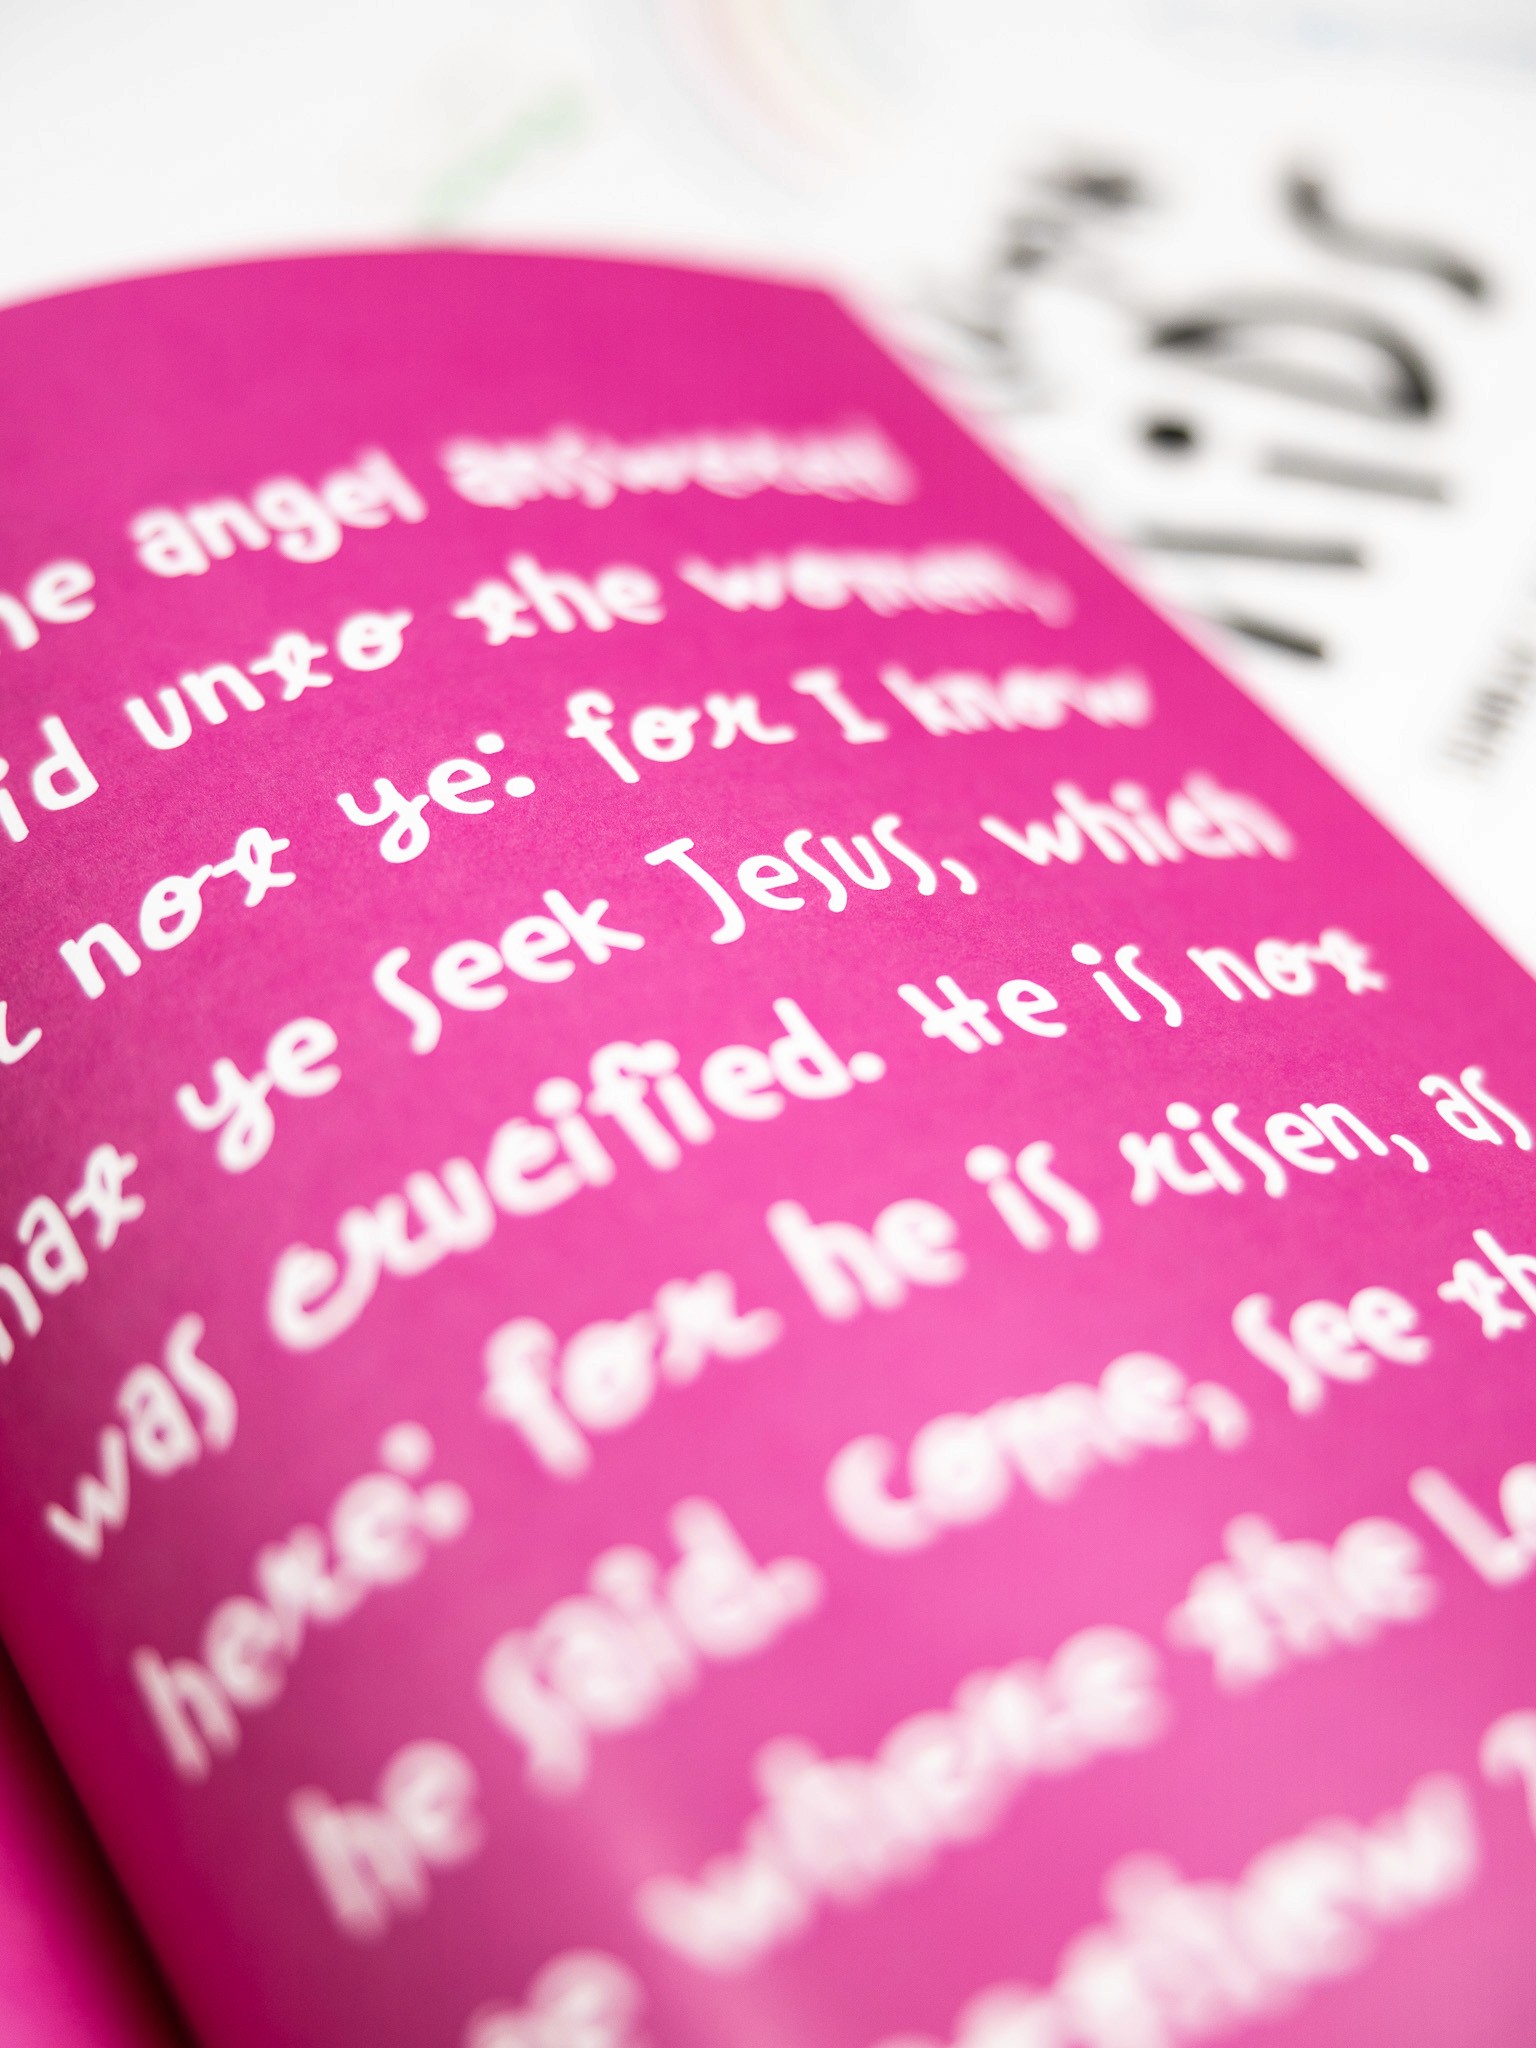 he angel answered
id unto the women,
not ye: for I know
hat ye seek Jesus, which
was crucified. He is not
here: for he is risen, as
he said. come, see th
where the Lo